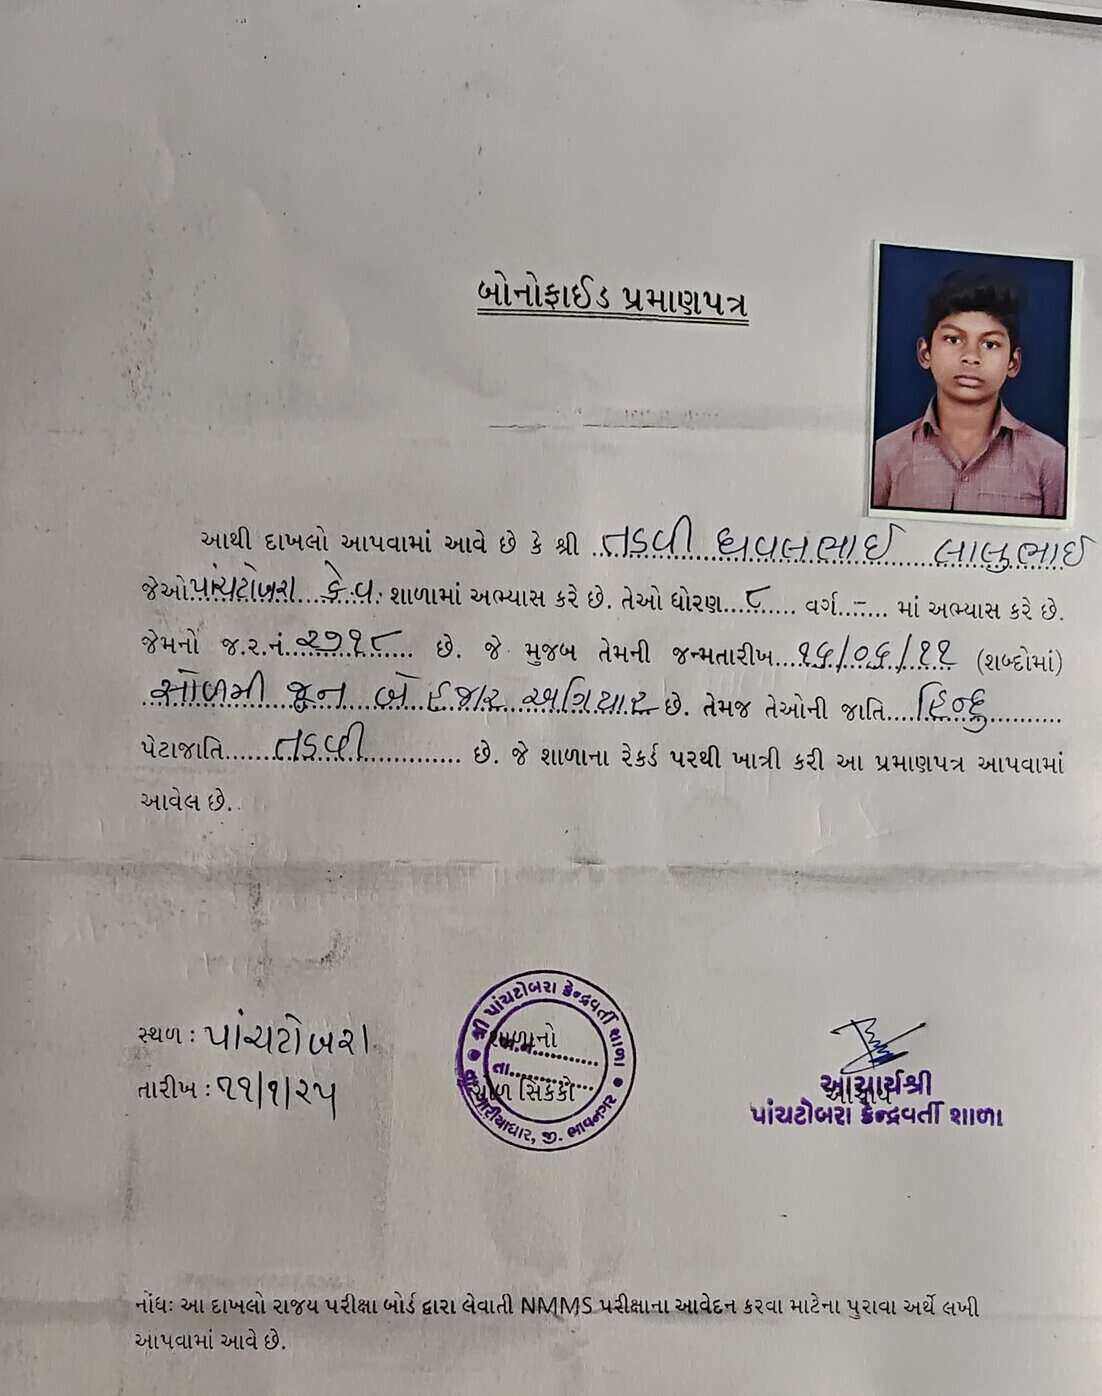 બોનોફાઈડ પ્રમાણપત્ર
આથી દાખલો આપવામાં આવે છે કે શ્રી ..તડવી ધવલભાઈ લાલુભાઈ
જેઓ પાંચટોબરા કે.વ. શાળામાં અભ્યાસ કરે છે. તેઓ ધોરણ....૮...... વર્ગ...-.... માં અભ્યાસ કરે છે.
જેમનો જ.ર.નં...૨૭૧૮..... છે. જે મુજબ તેમની જન્મતારીખ...૧૬/૦૬/૧૧ (શબ્દોમાં)
સોળમી જૂન બે હજાર અગિયાર છે. તેમજ તેઓની જાતિ....હિન્દુ..........
પેટાજાતિ......તડવી............. છે. જે શાળાના રેકર્ડ પરથી ખાત્રી કરી આ પ્રમાણપત્ર આપવામાં
આવેલ છે.
શ્રી પાંચટોબરા કેન્દ્રવર્તી શાળા
સ્થળ : પાંચટોબરા
શાળાનો
તા............
તારીખ : ૧૧/૧/૨૫
ગોળ સિક્કો
ગારીયાધાર, જી. ભાવનગર
આચાર્યશ્રી
આચાર્ય
પાંચટોબરા કેન્દ્રવર્તી શાળા
નોંધઃ આ દાખલો રાજય પરીક્ષા બોર્ડ દ્વારા લેવાતી NMMS પરીક્ષાના આવેદન કરવા માટેના પુરાવા અર્થે લખી
આપવામાં આવે છે.